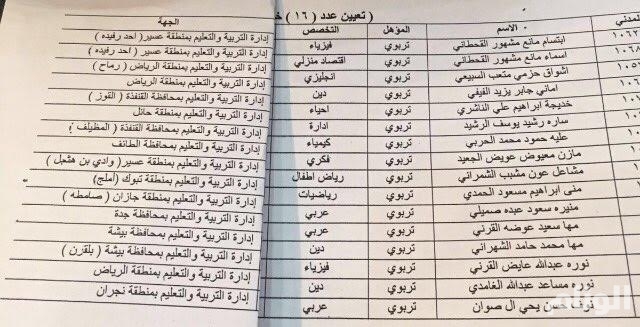 ( تعيين عدد ( ١٦ )
المدني الاسم المؤهل التخصص الجهة
ابتسام مانع مشهور القحطاني تربوي فيزياء إدارة التربية والتعليم بمنطقة عسير( احد رفيده )
اسماء مانع مشهور القحطاني تربوي اقتصاد منزلي إدارة التربية والتعليم بمنطقة عسير ( احد رفيده )
أشواق حزمي متعب السبيعي تربوي انجليزي إدارة التربية والتعليم بمنطقة الرياض ( رماح )
اماني جابر يزيد الفيفي تربوي دين إدارة التربية والتعليم بمنطقة الرياض
خديجة ابراهيم علي الناشري تربوي احياء إدارة التربية والتعليم بمحافظة القنفذة ( القوز )
ساره رشيد يوسف الرشيد تربوي ادارة إدارة التربية والتعليم بمنطقة حائل
عليه حمود محمد الحربي تربوي كيمياء إدارة التربية والتعليم بمحافظة القنفذة ( المظيلف )
مازن معيوض عويض الجعيد تربوي فكري إدارة التربية والتعليم بمحافظة الطائف
مشاعل عون مشبب الشمراني تربوي رياض اطفال إدارة التربية والتعليم بمنطقة عسير ( وادي بن هشبل )
منى ابراهيم مسعود الحمدي تربوي رياضيات إدارة التربية والتعليم بمنطقة تبوك (أملج)
منيره سعود عبده صميلي تربوي عربي إدارة التربية والتعليم بمنطقة جازان ( صامطه )
مها سعيد عوضه القرني تربوي عربي إدارة التربية والتعليم بمحافظة جدة
مها محمد حامد الشهراني تربوي دين إدارة التربية والتعليم بمحافظة بيشة
نوره عبدالله عايض القرني تربوي فيزياء إدارة التربية والتعليم بمحافظة بيشة ( بلقرن )
نوره مساعد عبدالله الغامدي تربوي دين إدارة التربية والتعليم بمنطقة الرياض
يحي ال صوان تربوي عربي إدارة التربية والتعليم بمنطقة نجران